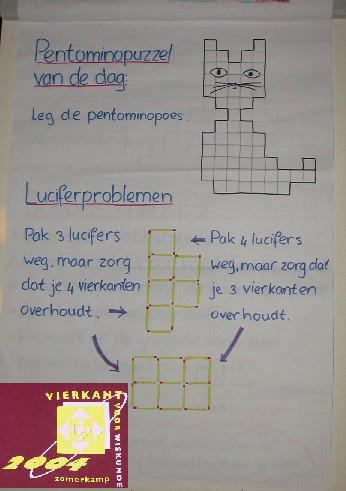 Pentominopuzzel
van de dag:
Leg de pentominopoes.
Luciferproblemen
Pak 3 lucifers
weg, maar zorg
dat je 4 vierkanten
overhoudt. →
← Pak 4 lucifers
weg, maar zorg dat
je 3 vierkanten
overhoudt.
VIERKANT
VOOR WISKUNDE
2004
zomerkamp